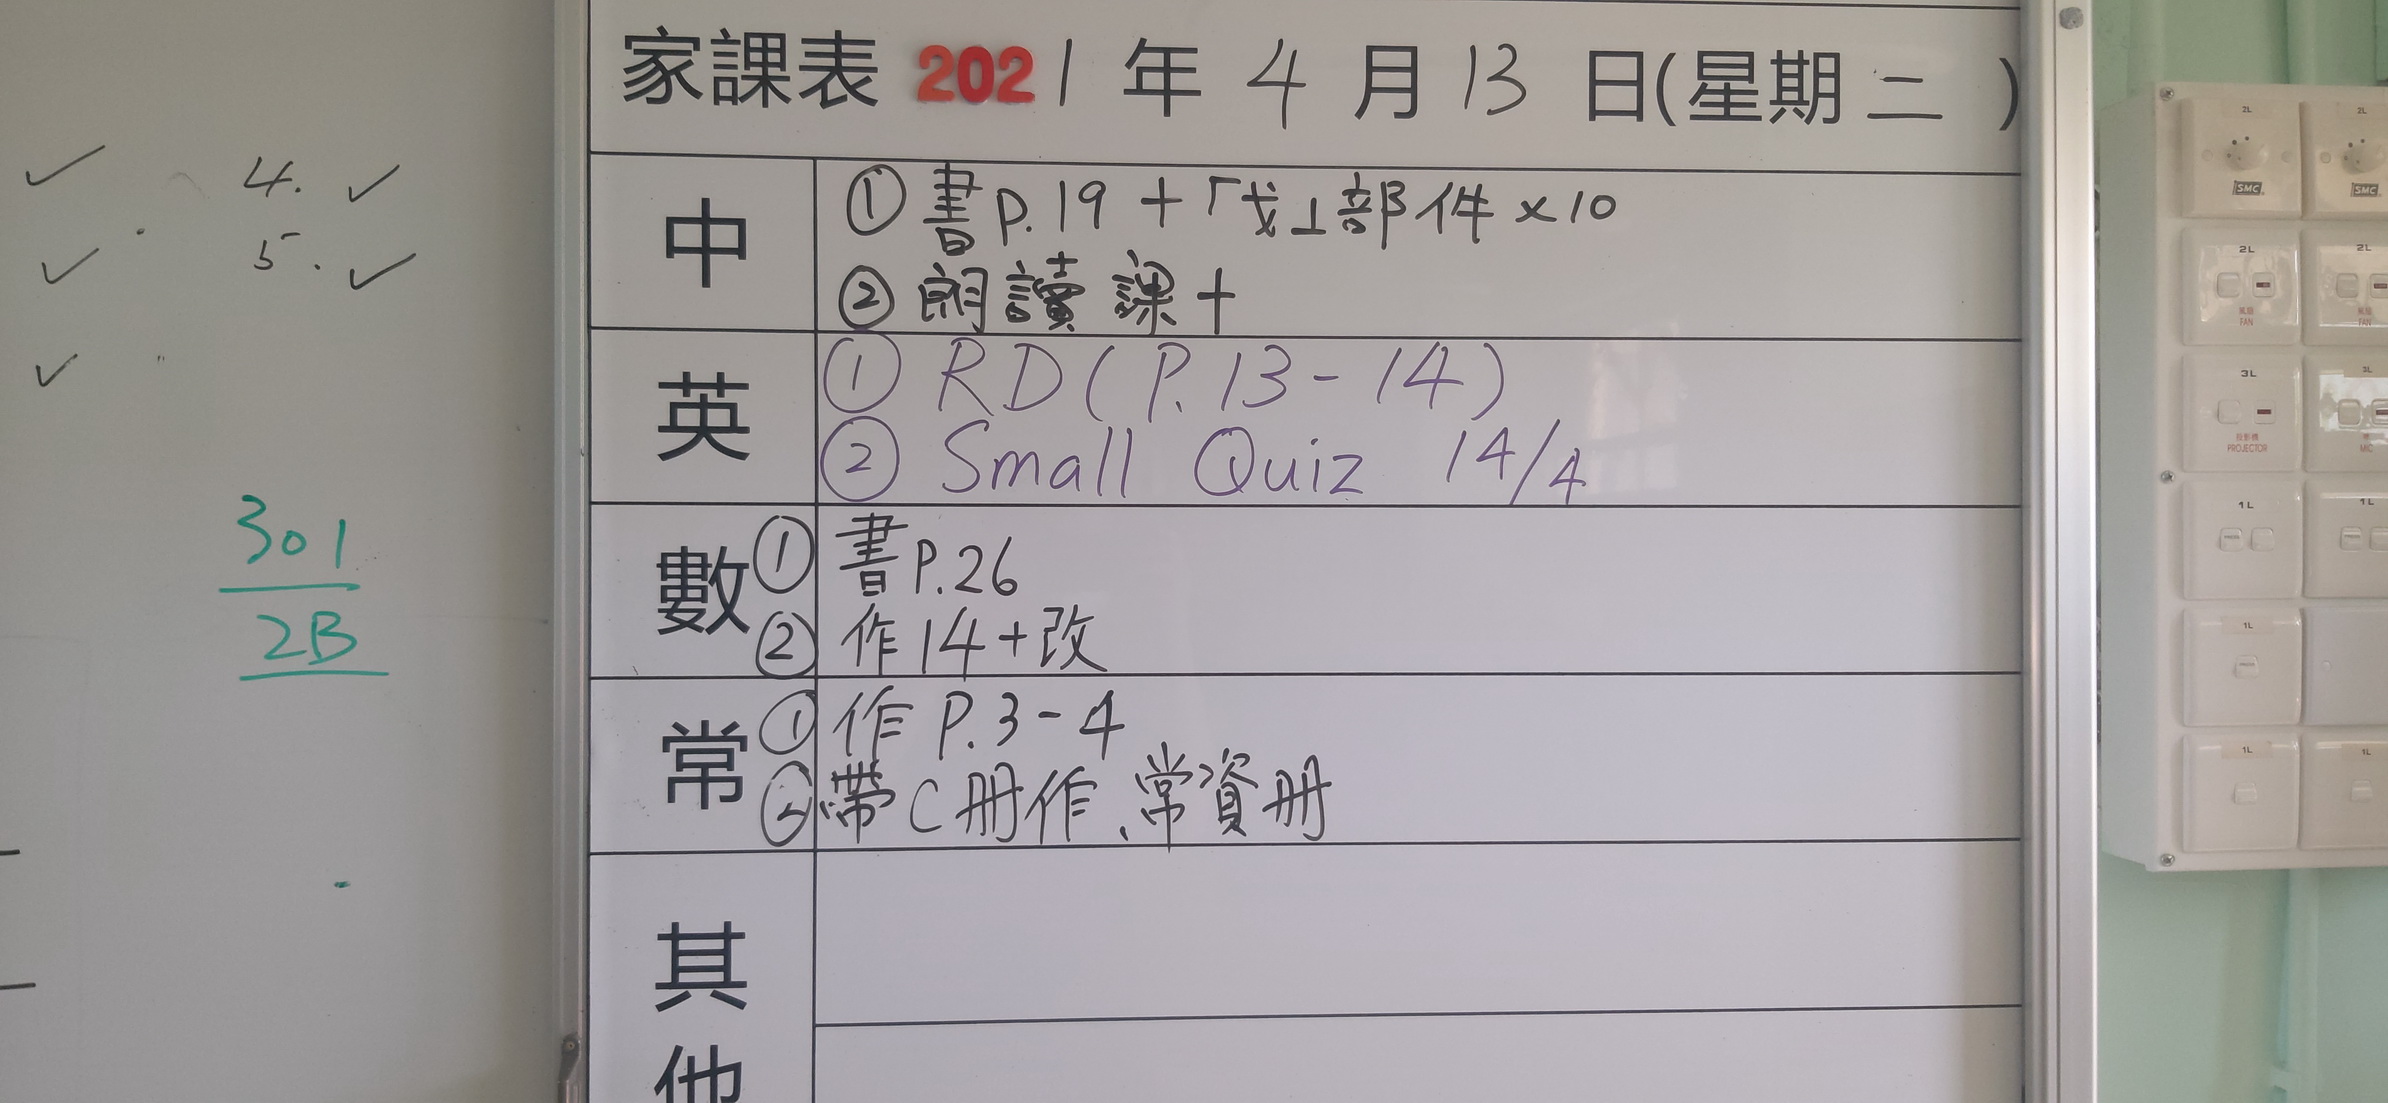 家課表 2021 年 4 月 13 日(星期 二 )
4. ✓
5. ✓
301
2B
中
① 書 P.19 + 「戈」部件 ×10
② 朗讀課十
英
① RD (P.13-14)
② Small Quiz 14/4
數
① 書 P.26
② 作 14 + 改
常
① 作 P.3-4
② 帶 C 冊作、常資冊
其
他
2L
2L
SMC
SMC
2L
2L
風扇
FAN
風扇
FAN
3L
投影機
PROJECTOR
MIC
1L
1L
1L
1L
1L